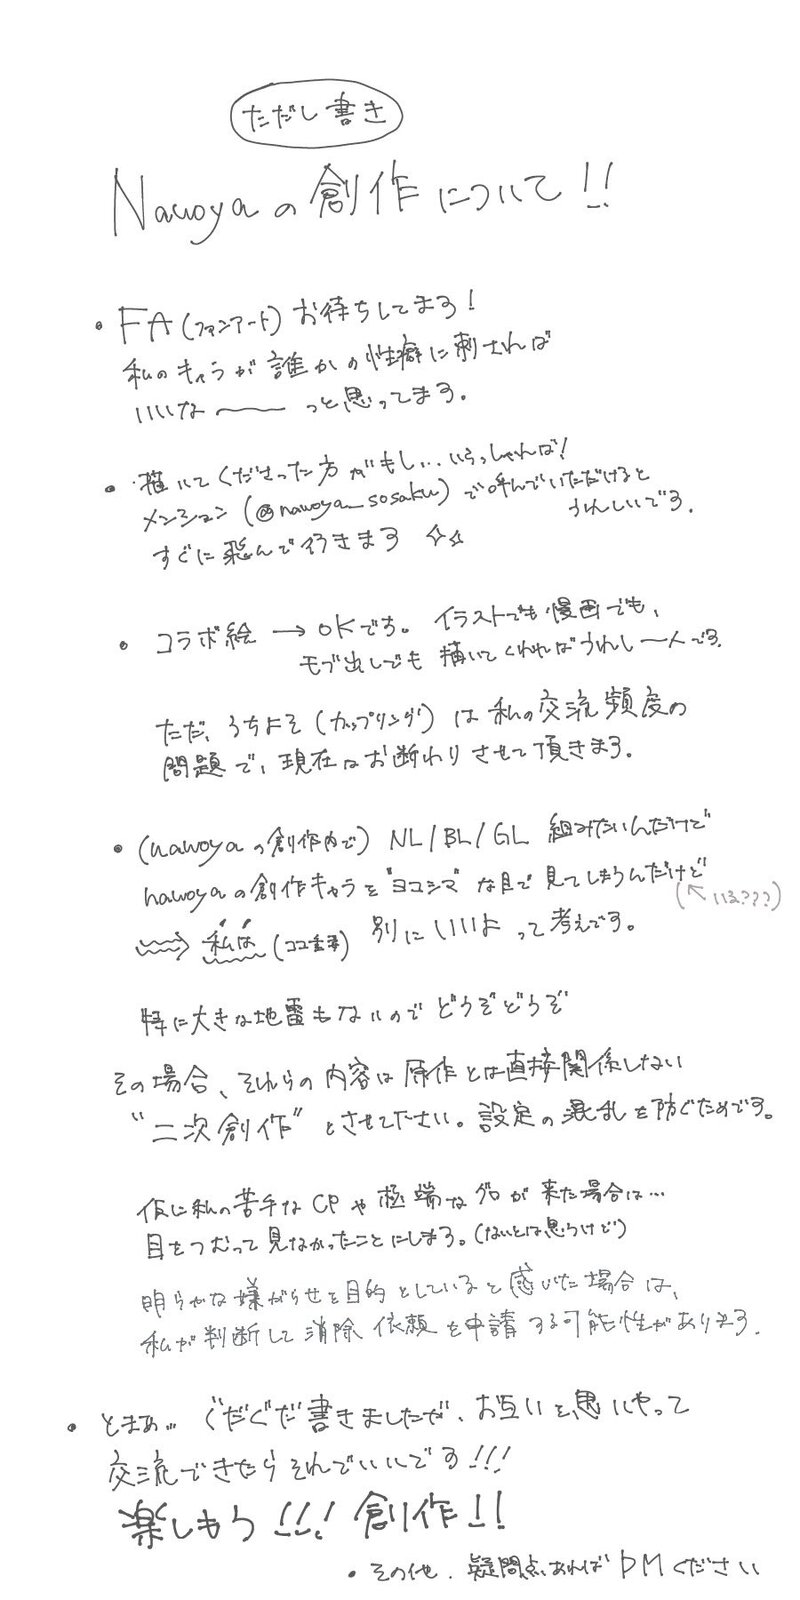 ただし書き
Nawoyaの創作について!!
・FA(ファンアート)お待ちしてます!
私のキャラが誰かの性癖に刺されば
いいな〜〜っと思ってます。
・描いてくださった方がもし…いらっしゃれば!
メンション(@nawoya_sosaku)で呼んでいただけると
うれしいです。
すぐに飛んで行きます ☆☆
・コラボ絵→OKです。イラストでも漫画でも、
モブ出しでも描いてくれればうれしーんです。
ただ、うちよそ(カップリング)は私の交流頻度の
問題で、現在はお断わりさせて頂きます。
・(nawoyaの創作内で)NL/BL/GL 組みたいんだけど
nawoyaの創作キャラを"ヨコシマ"な目で見てしまうんだけど
(↖いる???)
⇒私は(ココ重要)別にいいよって考えです。
特に大きな地雷もないのでどうぞどうぞ
その場合、それらの内容は原作とは直接関係しない
"二次創作"とさせて下さい。設定の混乱を防ぐためです。
仮に私の苦手なCPや極端なグロが来た場合は…
目をつむって見なかったことにします。(ないとは思うけど)
明らかな嫌がらせを目的としていると感じた場合は、
私が判断して消除依頼を申請する可能性があります。
・とまぁ… ぐだぐだ書きましたが、お互いを思いやって
交流できたらそれでいいです!!!
楽しもう!!! 創作!!
・その他、疑問点あればDMください